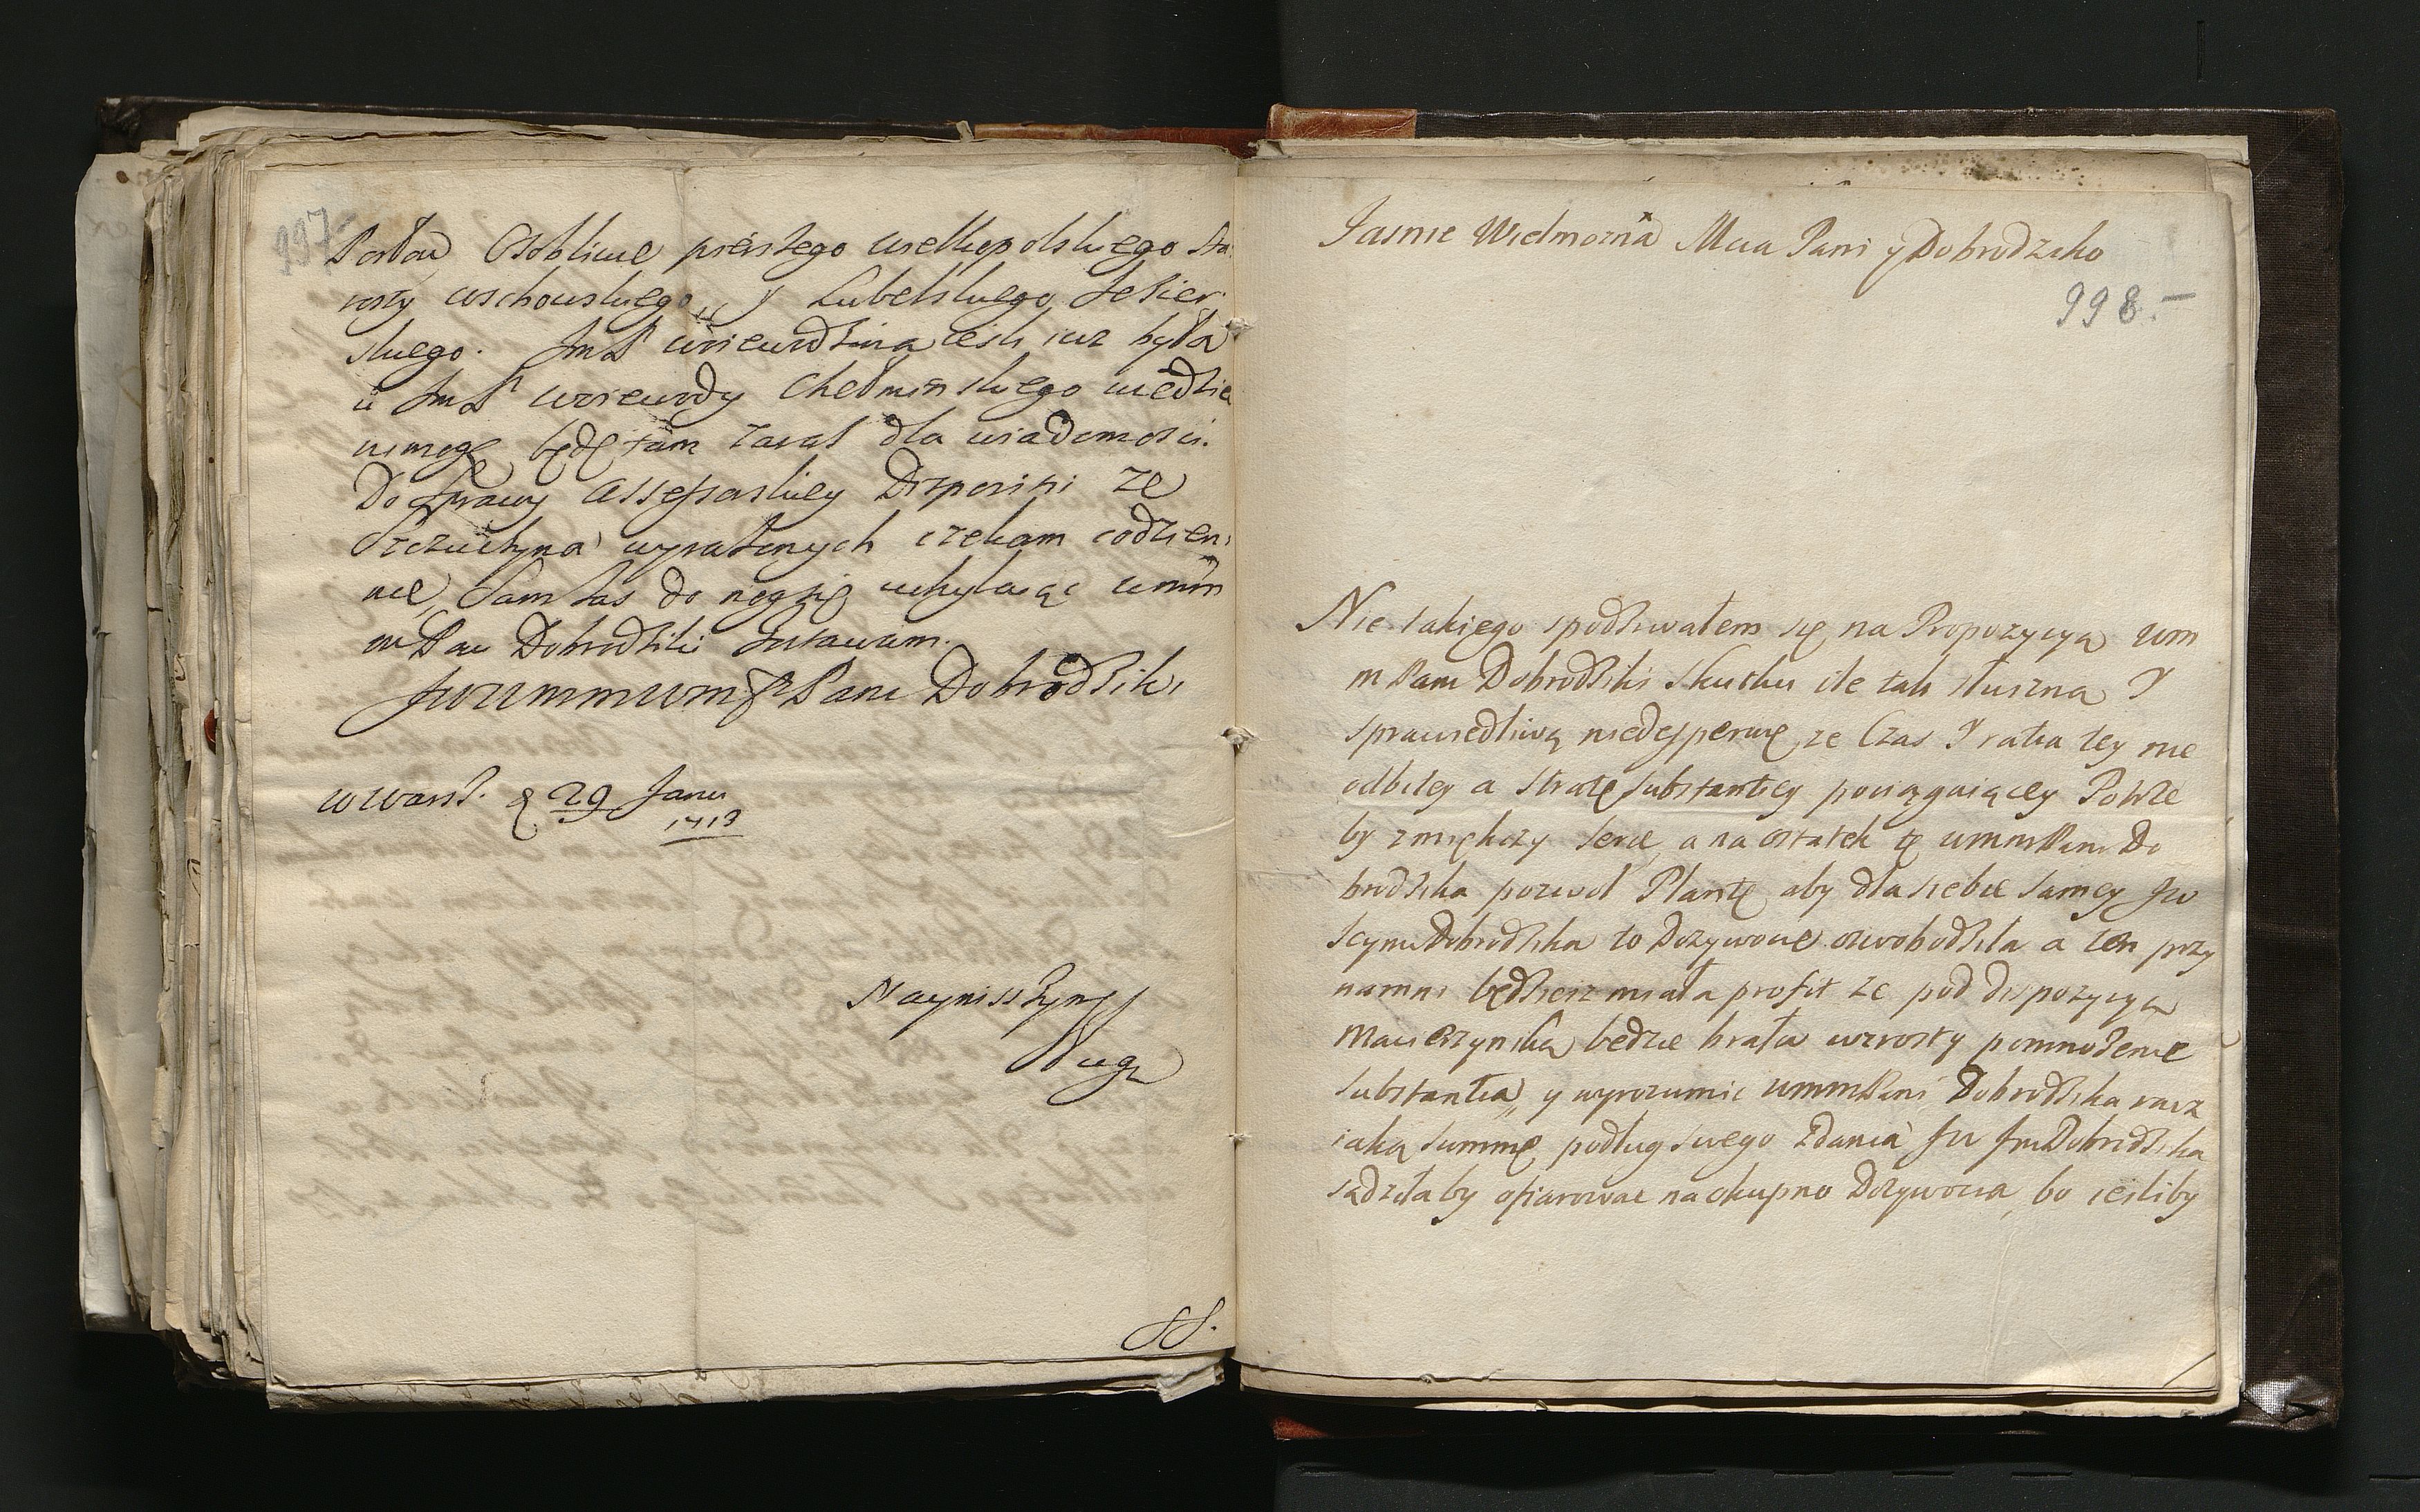 997
Posłow Osobliwie pierszego wielkopolskiego Sta
rosty wschowskiego, y Lubelskiego Jezier
skiego. JmP woiewodzina iesli iuz była
u JmP woiewody Chełminskiego wiedziec
niemogę będę tam zaraz dla wiadomosci.
Do sprawy Assessorskiey Dispozicii ze
Szczuczyna wyrazonych czekam codzien
nie, Sam zas do nog się uchylaiąc wmm
mPani Dobrodziki zostawam.
JWWmmwmPani Dobrodziki
w Warsz. d 29 Janu
1713
Nayniszszym
Sługą
SS.
Jasnie Wielmozna Mcia Pani y Dobrodziko
998.-
Nie takiego spodziwałem się na Propozycyą wm
mPani Dobrodziki skutku ile tak słuszna y
sprawiedliwą niedesperuię ze Czas y ratia tey nie
odbitey a stratę substantiey pociągaiącey Potrze
by zmiękczy serce, a na ostatek tę wmmPani Do
brodzika pozwol Plantę aby dla siebie samey Jw
Jeymc Dobrodzika to Dozywocie oswobodziła a ten przy
namni będziesz miała profit ze pod dispozycyą
Macierzynską będzie brała wzrosty pomnozenie
substantia, y wyrozumiec wmmPani Dobrodzika racz
iaką summę podług swego zdania Jw Jm Dobrodzika
sądziłaby ofiarowac na okupno Dozywocia, bo iesliby